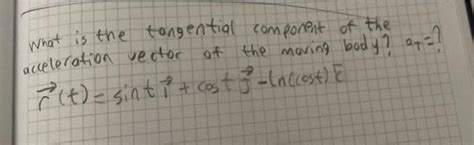 What is the tangential component of the
acceleration vector of the moving body? a_T=?
r⃗(t) = sint i⃗ + cost j⃗ - ln(cost) k⃗